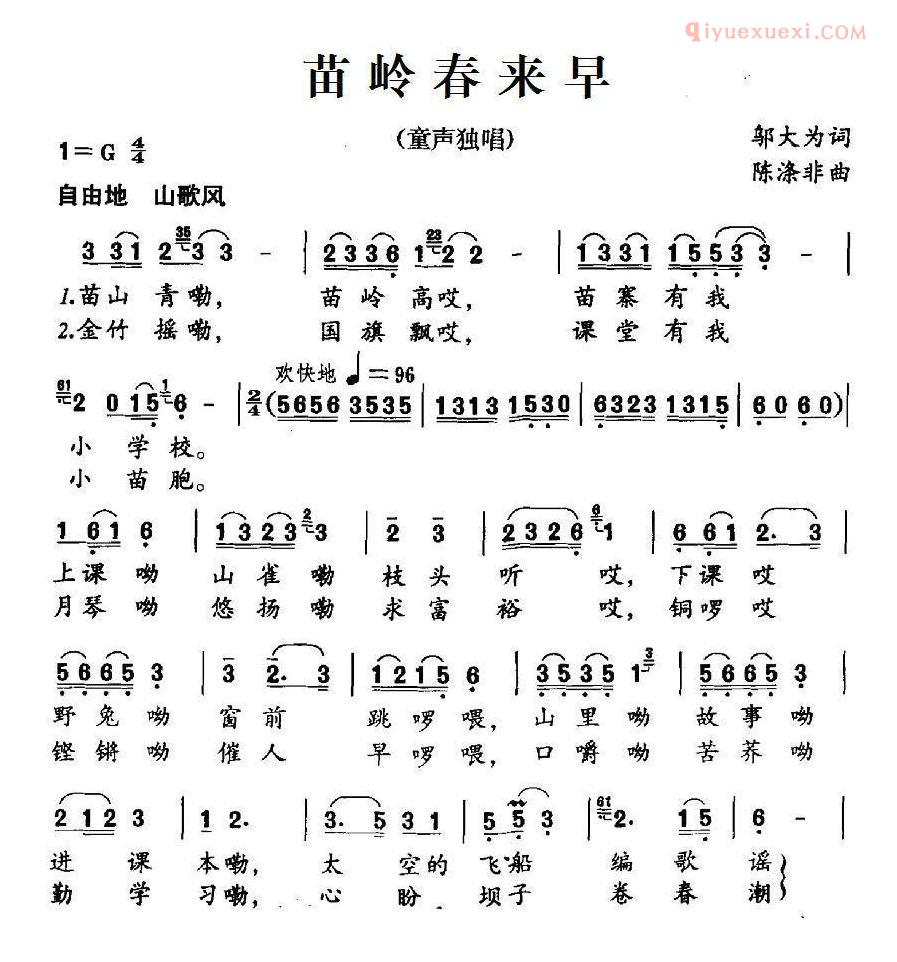 qiyuexuexi.com
苗岭春来早
(童声独唱)
1=G 4/4
邬大为词
陈涤非曲
自由地 山歌风
3 331 2 35 3 3 - | 2336 1 23 2 2 - | 1331 1553 3 - |
1.苗山 青嘞, 苗岭 高哎, 苗寨 有我
2.金竹 摇嘞, 国旗 飘哎, 课堂 有我
欢快地 ♩=96
61 2 0 15 1 6 - | 2/4 (5656 3535 | 1313 1530 | 6323 1315 | 6060) |
小 学校。
小 苗胞。
1 61 6 | 1323 2 3 | 2 3 | 2326 6 1 | 6 61 2. 3 |
上课 呦 山雀 嘞 枝头 听 哎, 下课 哎
月琴 呦 悠扬 嘞 求富 裕 哎, 铜啰 哎
5665 3 | 3 2. 3 | 1215 6 | 3535 1 3 | 5665 3 |
野兔 呦 窗前 跳啰喂, 山里 呦 故事 呦
铿锵 呦 催人 早啰喂, 口嚼 呦 苦荞 呦
212 3 | 1 2. | 3. 5 31 | 5 5 3 | 61 2. 15 | 6 - |
进 课 本嘞, 太 空的 飞船 编 歌 谣
勤 学 习嘞, 心 盼 坝子 卷 春 潮